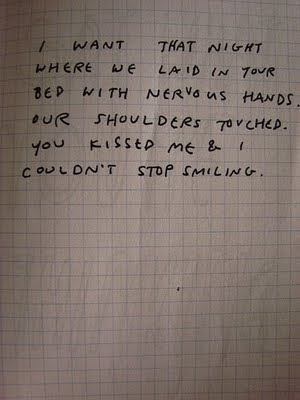 I WANT THAT NIGHT
WHERE WE LAID IN YOUR
BED WITH NERVOUS HANDS.
OUR SHOULDERS TOUCHED.
YOU KISSED ME & I
COULDN'T STOP SMILING.